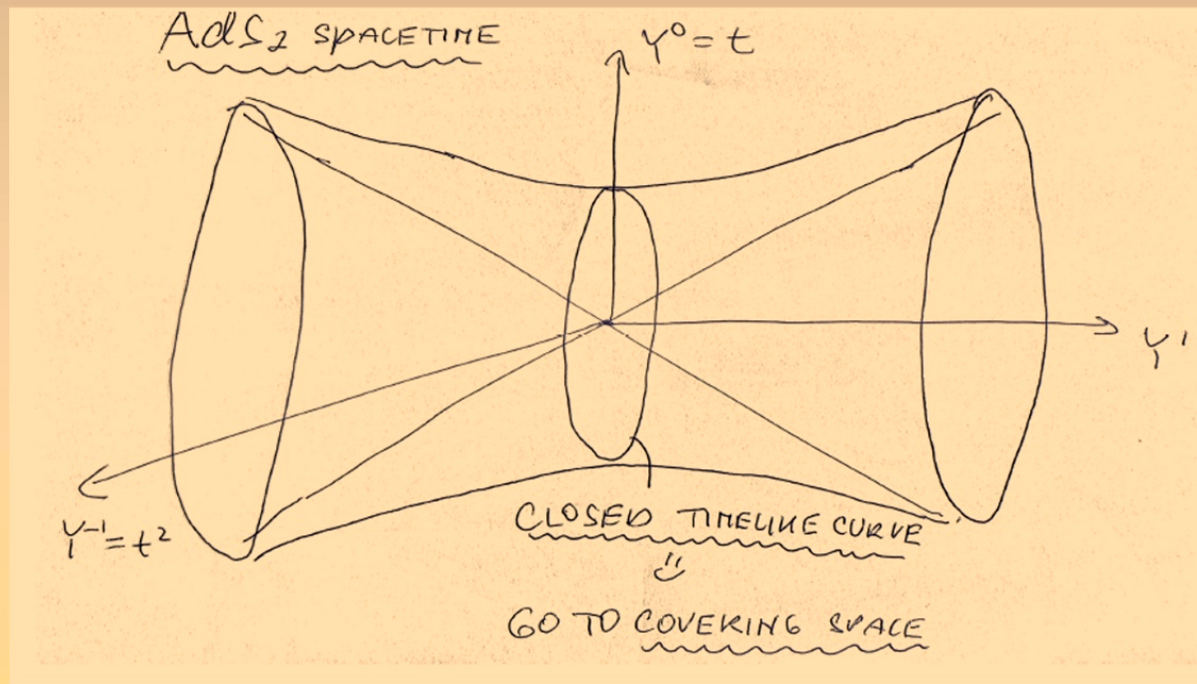 AdS₂ SPACETIME
Y⁰ = t
Y¹
Y⁻¹ = t²
CLOSED TIMELIKE CURVE
GO TO COVERING SPACE